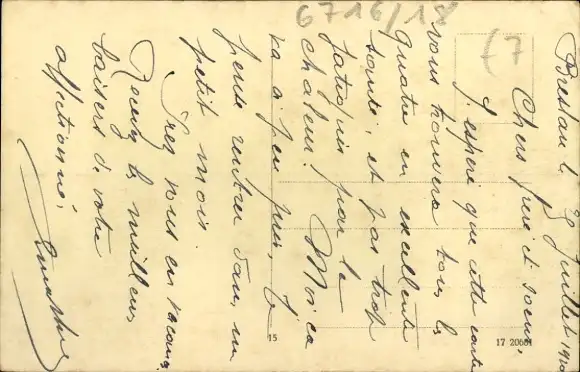 6716/18
(7
Breslau le 28 Juillet 19
Chers frère et soeur,
J'espère que cette carte
vous trouvera tous les
quatre en excellente
santé, et pas trop
fatigués par la
chaleur. Moi ça
va à peu près, je
pense rentrer dans un
petit mois.
Irez vous en vacances
Recevez les meilleurs
baisers de votre
affectionné,
15
17 20681